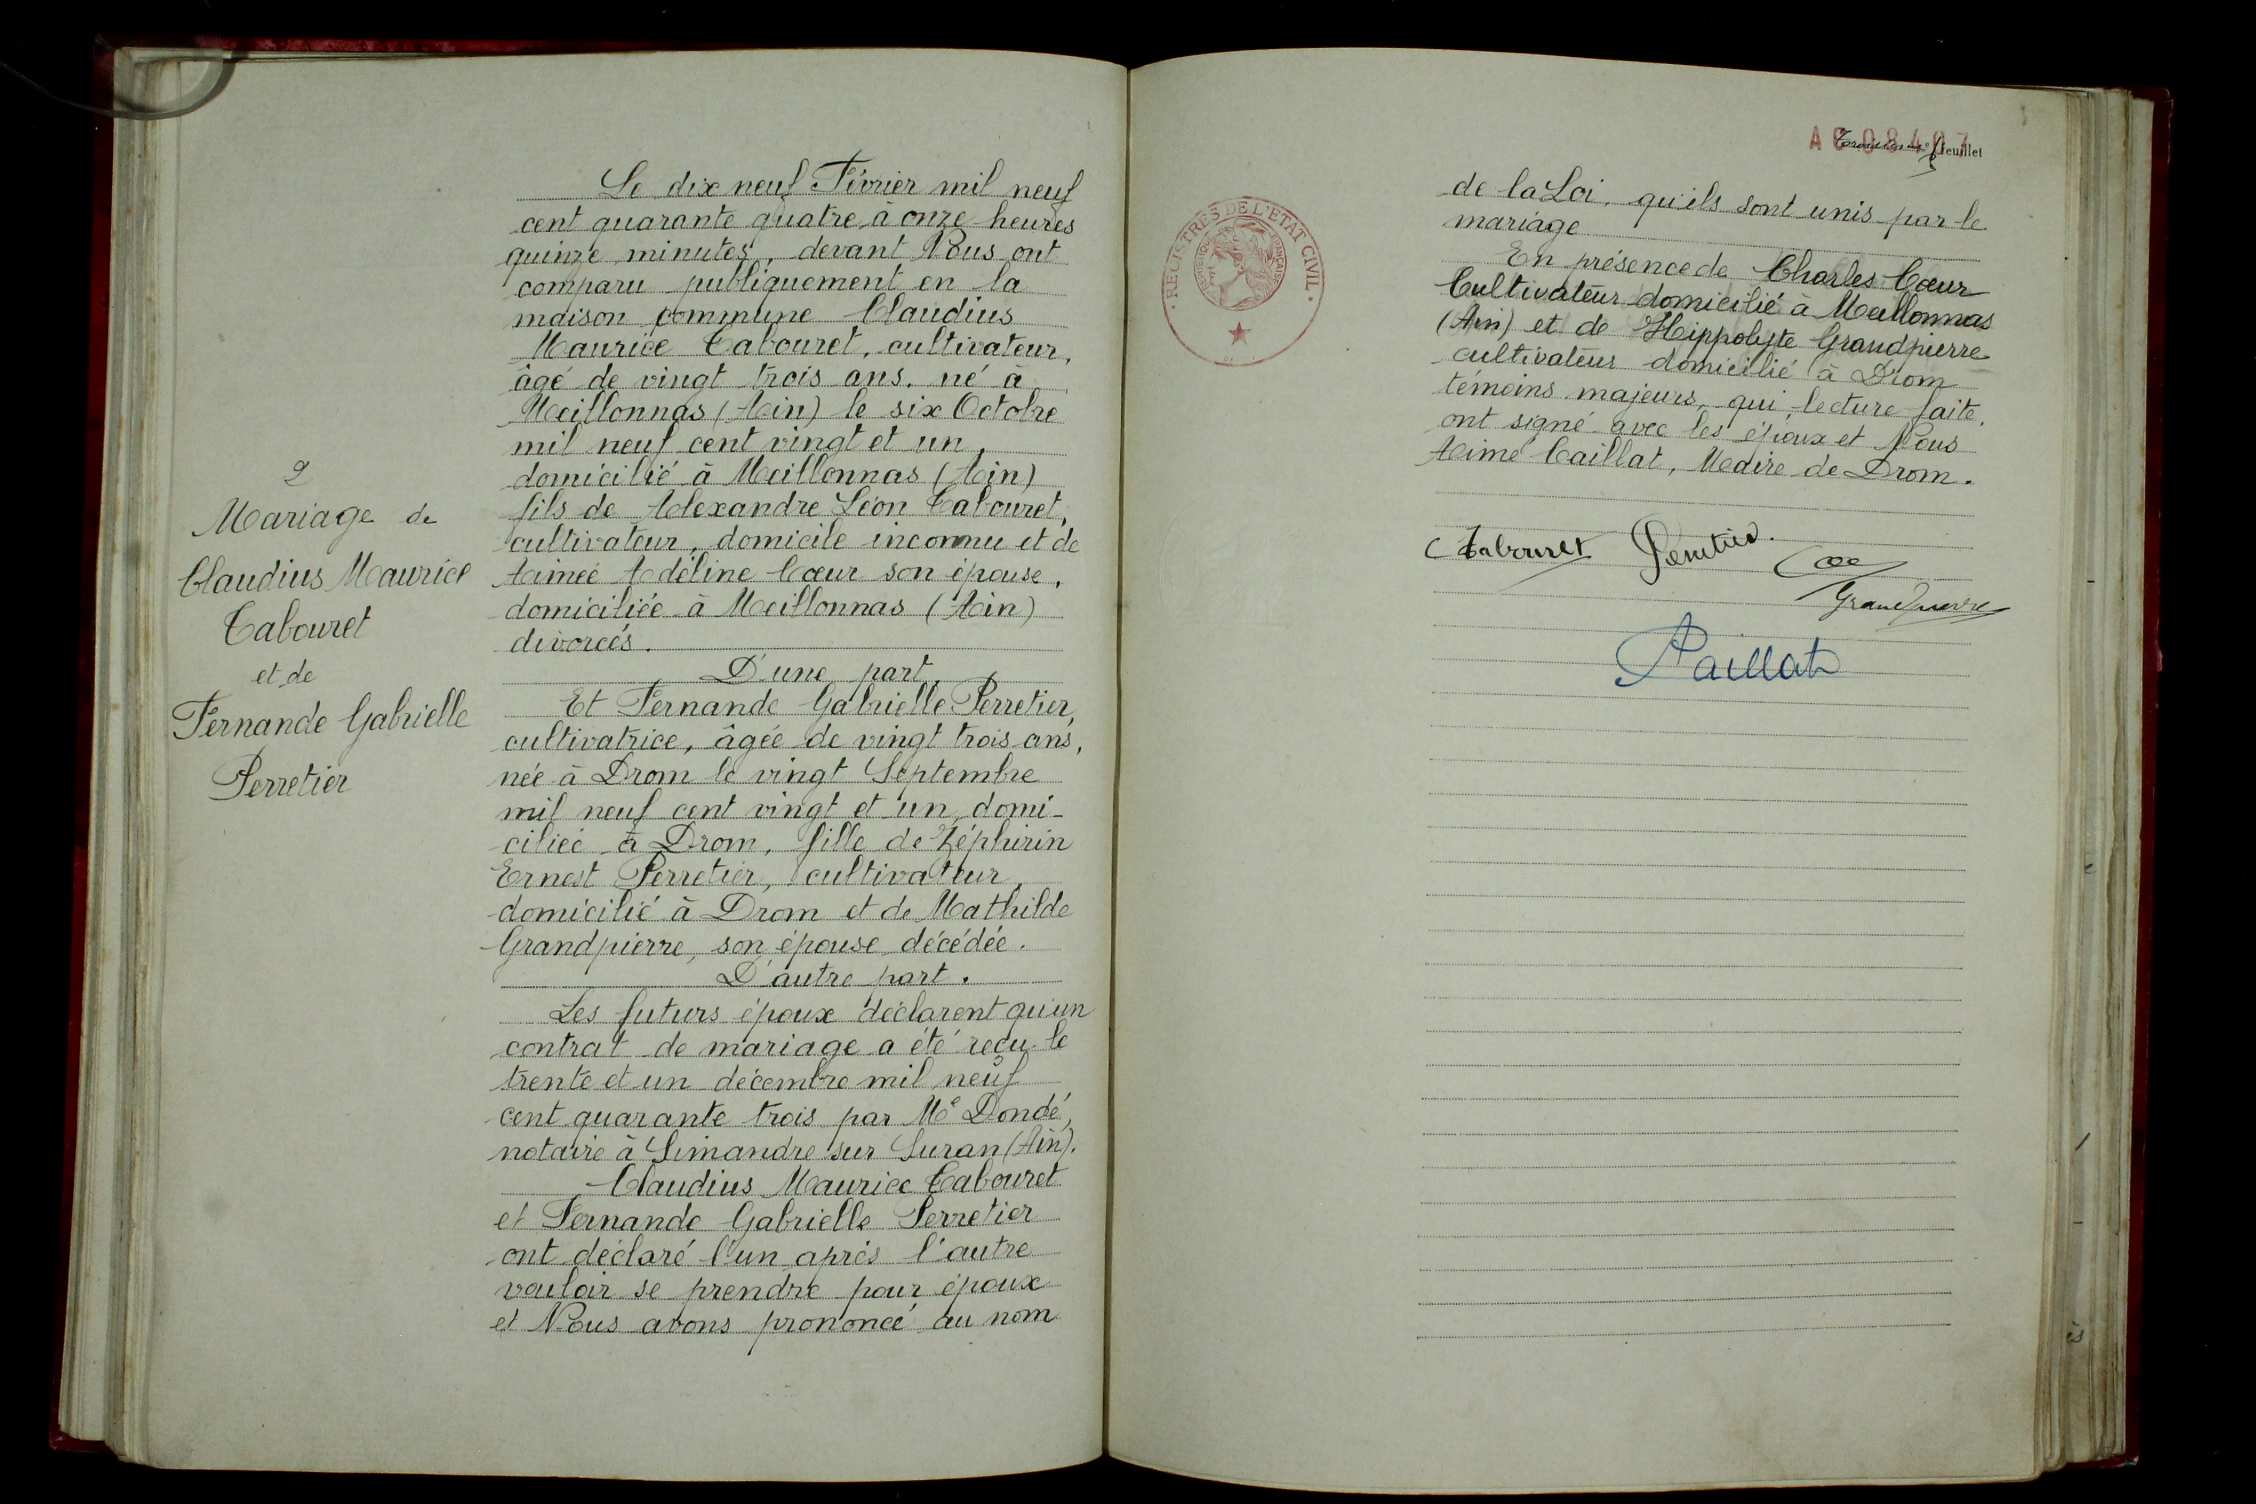 2
Mariage de
Claudius Maurice
Tabouret
et de
Fernande Gabrielle
Perretier
Le dix neuf Février mil neuf
cent quarante quatre à onze heures
quinze minutes, devant Nous ont
comparu publiquement en la
maison commune Claudius
Maurice Tabouret, cultivateur,
âgé de vingt trois ans, né à
Meillonnas (Ain) le six Octobre
mil neuf cent vingt et un,
domicilié à Meillonnas (Ain)
fils de Alexandre Léon Tabouret,
cultivateur, domicile inconnu et de
Aimée Adéline Cœur son épouse,
domiciliée à Meillonnas (Ain)
divorcés.
D'une part,
Et Fernande Gabrielle Perretier,
cultivatrice, âgée de vingt trois ans,
née à Drom le vingt Septembre
mil neuf cent vingt et un, domi-
ciliée à Drom, fille de Zéphirin
Ernest Perretier, cultivateur,
domicilié à Drom et de Mathilde
Grandpierre, son épouse, décédée.
D'autre part.
Les futurs époux déclarent qu'un
contrat de mariage a été reçu le
trente et un décembre mil neuf
cent quarante trois par Me Dondé,
notaire à Simandre sur Suran (Ain).
Claudius Maurice Tabouret
et Fernande Gabrielle Perretier
ont déclaré l'un après l'autre
vouloir se prendre pour époux
et Nous avons prononcé au nom
feuillet
REGISTRES DE L'ÉTAT CIVIL
de la Loi, qu'ils sont unis par le
mariage
En présence de Charles Cœur
Cultivateur domicilié à Meillonnas
(Ain) et de Hippolyte Grandpierre
cultivateur domicilié à Drom
témoins majeurs, qui, lecture faite,
ont signé avec les époux et Nous
Aimé Caillat, Maire de Drom.
Tabouret
Grandpierre
Caillat